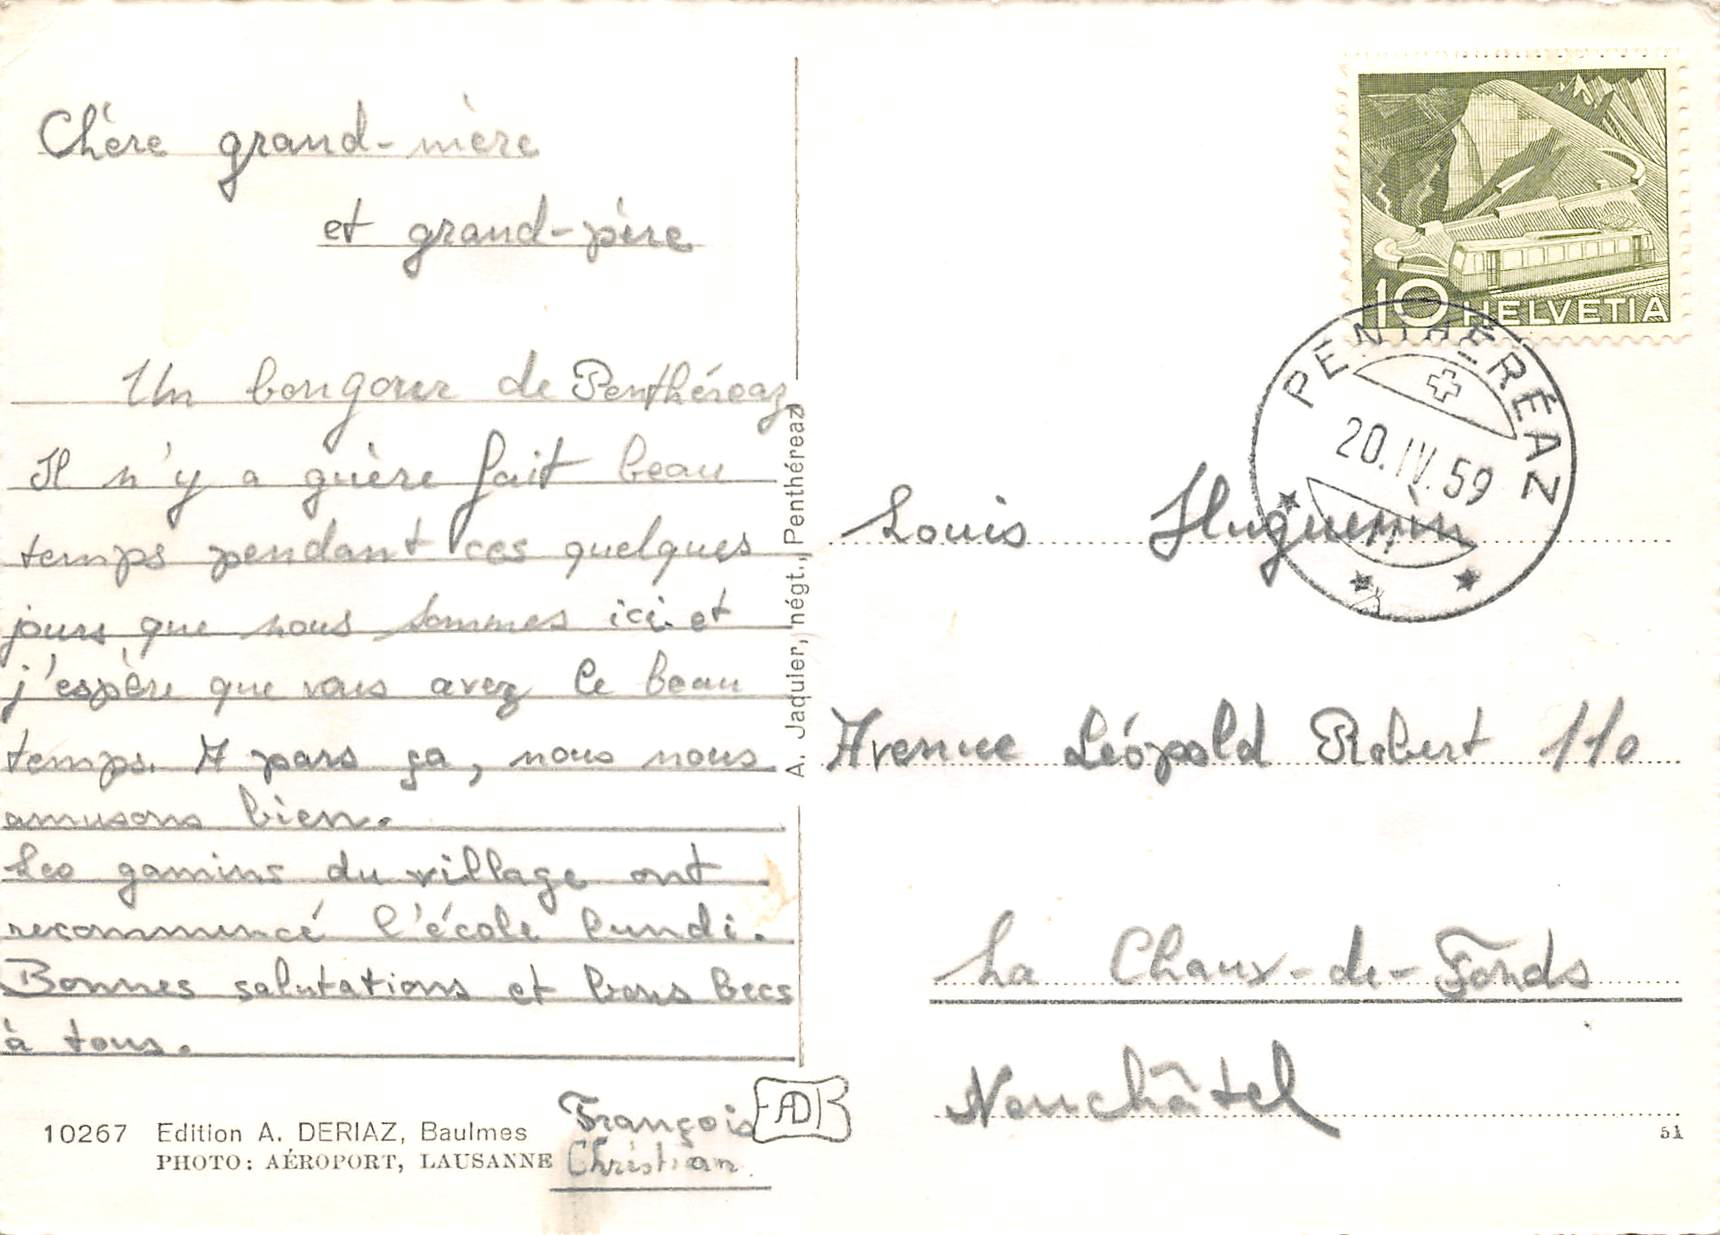 Chère grand-mère
et grand-père
Un bongour de Penthéreaz
Il n'y a guère fait beau
temps pendant ces quelques
jours que nous sommes ici et
j'espère que vous avez le beau
temps. A pars ça, nous nous
amusons bien.
Les gamins du village ont
recommencé l'école lundi.
Bonnes salutations et bons becs
à tous.
François
Christian
10267 Edition A. DERIAZ, Baulmes
PHOTO: AÉROPORT, LAUSANNE
A. Jaquier, négt., Penthéreaz
10 HELVETIA
PENTHÉRÉAZ
20.IV.59
Louis Huguenin
Avenue Léopold Robert 110
La Chaux-de-Fonds
Neuchâtel
EADB
51